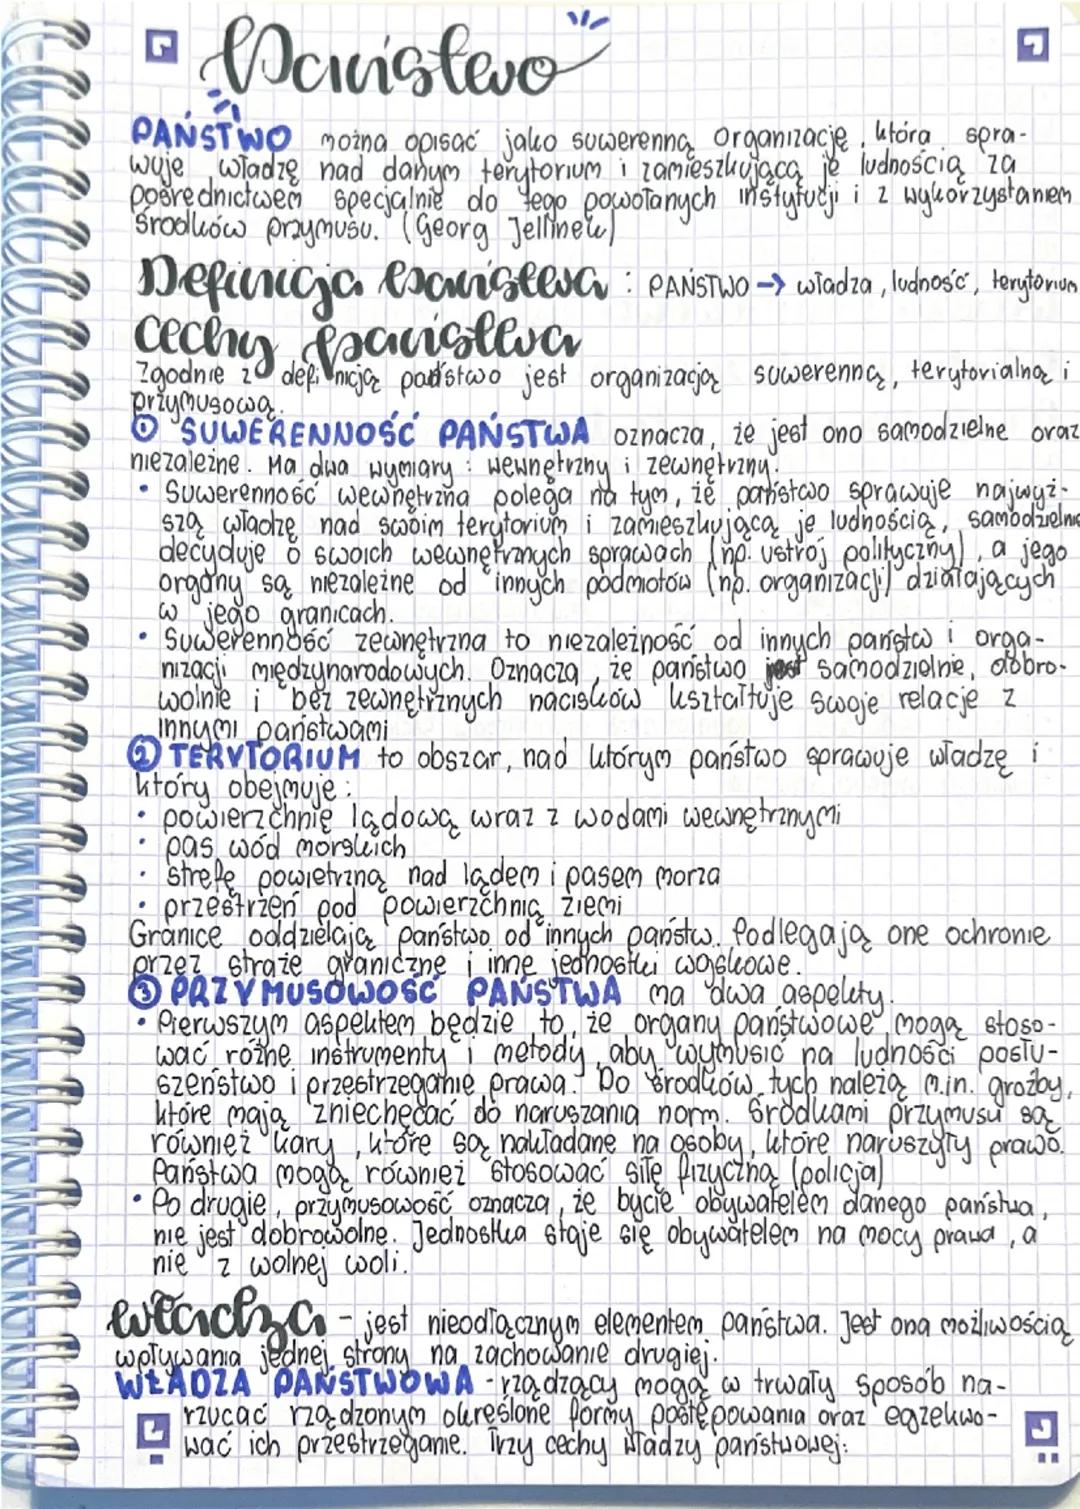 Państwo
PAŃSTWO można opisać jako suwerenną organizację, która spra-
wuje władzę nad danym terytorium i zamieszkującą je ludnością za
pośrednictwem specjalnie do tego powołanych instytucji i z wykorzystaniem
środków przymusu. (Georg Jellinek)
Definicja państwa : PAŃSTWO → władza, ludność, terytorium
cechy państwa
Zgodnie z definicją państwo jest organizacją suwerenną, terytorialną i
przymusową.
① SUWERENNOŚĆ PAŃSTWA oznacza, że jest ono samodzielne oraz
niezależne. Ma dwa wymiary : wewnętrzny i zewnętrzny.
• Suwerenność wewnętrzna polega na tym, że państwo sprawuje najwyż-
szą władzę nad swoim terytorium i zamieszkującą je ludnością, samodzielnie
decyduje o swoich wewnętrznych sprawach (np. ustrój polityczny), a jego
organy są niezależne od innych podmiotów (np. organizacji) działających
w jego granicach.
• Suwerenność zewnętrzna to niezależność od innych państw i orga-
nizacji międzynarodowych. Oznacza, że państwo samodzielnie, dobro-
wolnie i bez zewnętrznych nacisków kształtuje swoje relacje z
innymi państwami
② TERYTORIUM to obszar, nad którym państwo sprawuje władzę i
który obejmuje :
• powierzchnię lądową wraz z wodami wewnętrznymi
• pas wód morskich
• strefę powietrzną nad lądem i pasem morza
• przestrzeń pod powierzchnią ziemi
Granice oddzielają państwo od innych państw. Podlegają one ochronie
przez straże graniczne i inne jednostki wojskowe.
③ PRZYMUSOWOŚĆ PAŃSTWA ma dwa aspekty.
• Pierwszym aspektem będzie to, że organy państwowe mogą stoso-
wać różne instrumenty i metody, aby wymusić na ludności posłu-
szeństwo i przestrzeganie prawa. Do środków tych należą m.in. groźby,
które mają zniechęcać do naruszania norm. Środkami przymusu są
również kary, które są nakładane na osoby, które naruszyły prawo.
Państwa mogą również stosować siłę fizyczną (policja)
• Po drugie, przymusowość oznacza, że bycie obywatelem danego państwa,
nie jest dobrowolne. Jednostka staje się obywatelem na mocy prawa, a
nie z wolnej woli.
władza - jest nieodłącznym elementem państwa. Jest ona możliwością
wpływania jednej strony na zachowanie drugiej.
WŁADZA PAŃSTWOWA - rządzący mogą w trwały sposób na-
rzucać rządzonym określone formy postępowania oraz egzekwo-
wać ich przestrzeganie. Trzy cechy władzy państwowej: